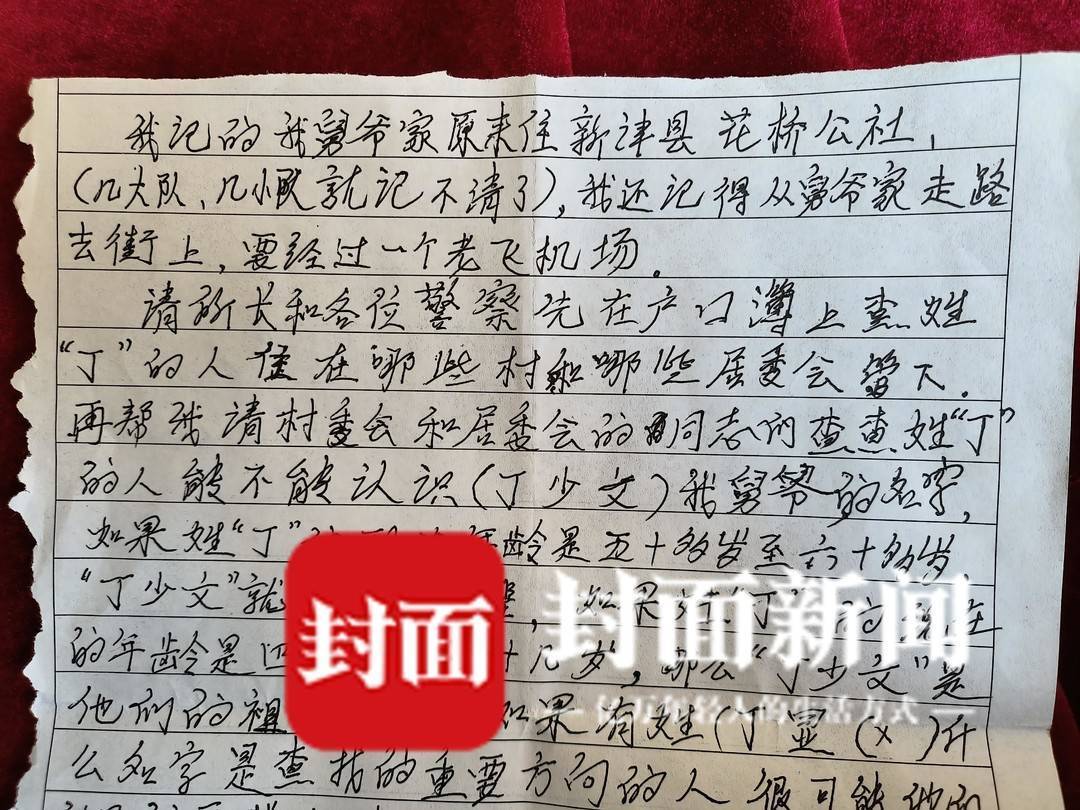 我记的我舅爷家原来住新津县花桥公社,
(几大队、几小队就记不清了),我还记得从舅爷家走路
去街上,要经过一个老飞机场。
请所长和各位警察先在户口薄上查姓
“丁”的人住在哪些村和哪些居委会留下.
再帮我请村委会和居委会的同志们查查姓“丁”
的人能不能认识(丁少文)我舅爷的名字,
如果姓“丁”年龄是五十多岁至六十多岁,
“丁少文”就
如果姓“丁”的现在
的年龄是四十几岁,那么“丁少文”是
他们的祖如果有姓(丁显(x)什
么名字是查找的重要方向的人很可能他的
封面
封面新闻
亿万年轻人的生活方式